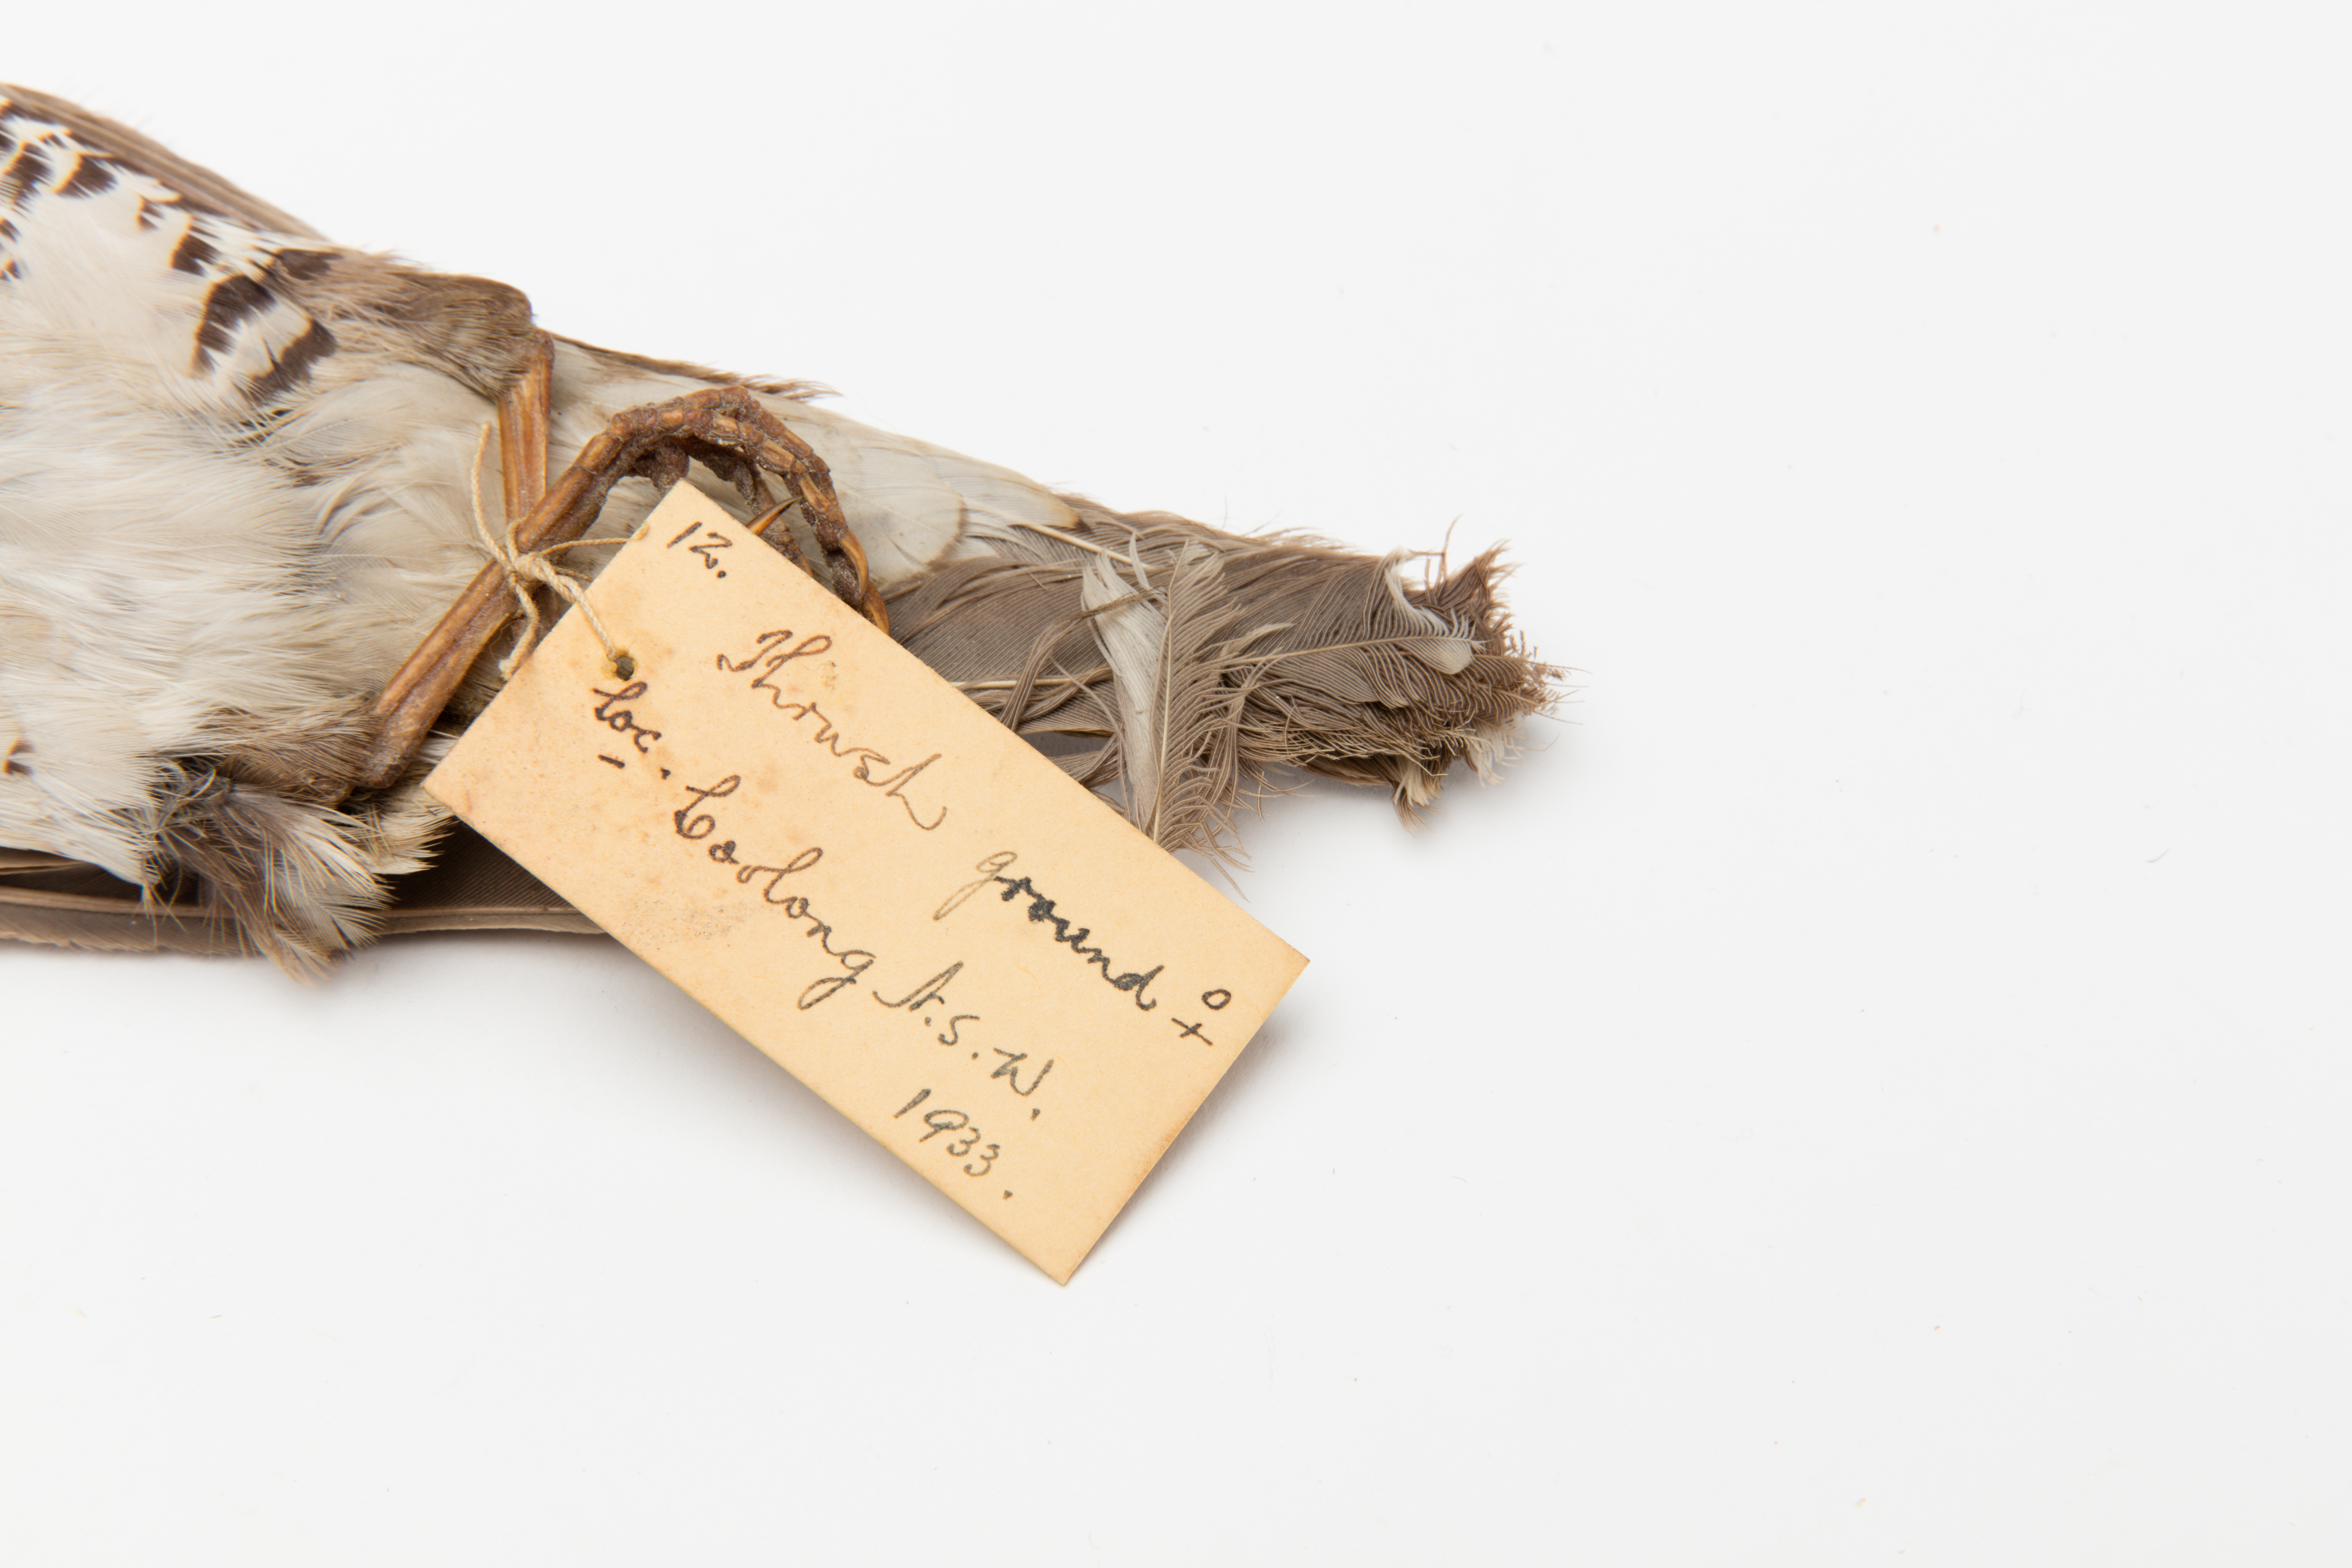 12.
Thrush ground ♀
Loc. Coolong N.S.W.
1933.